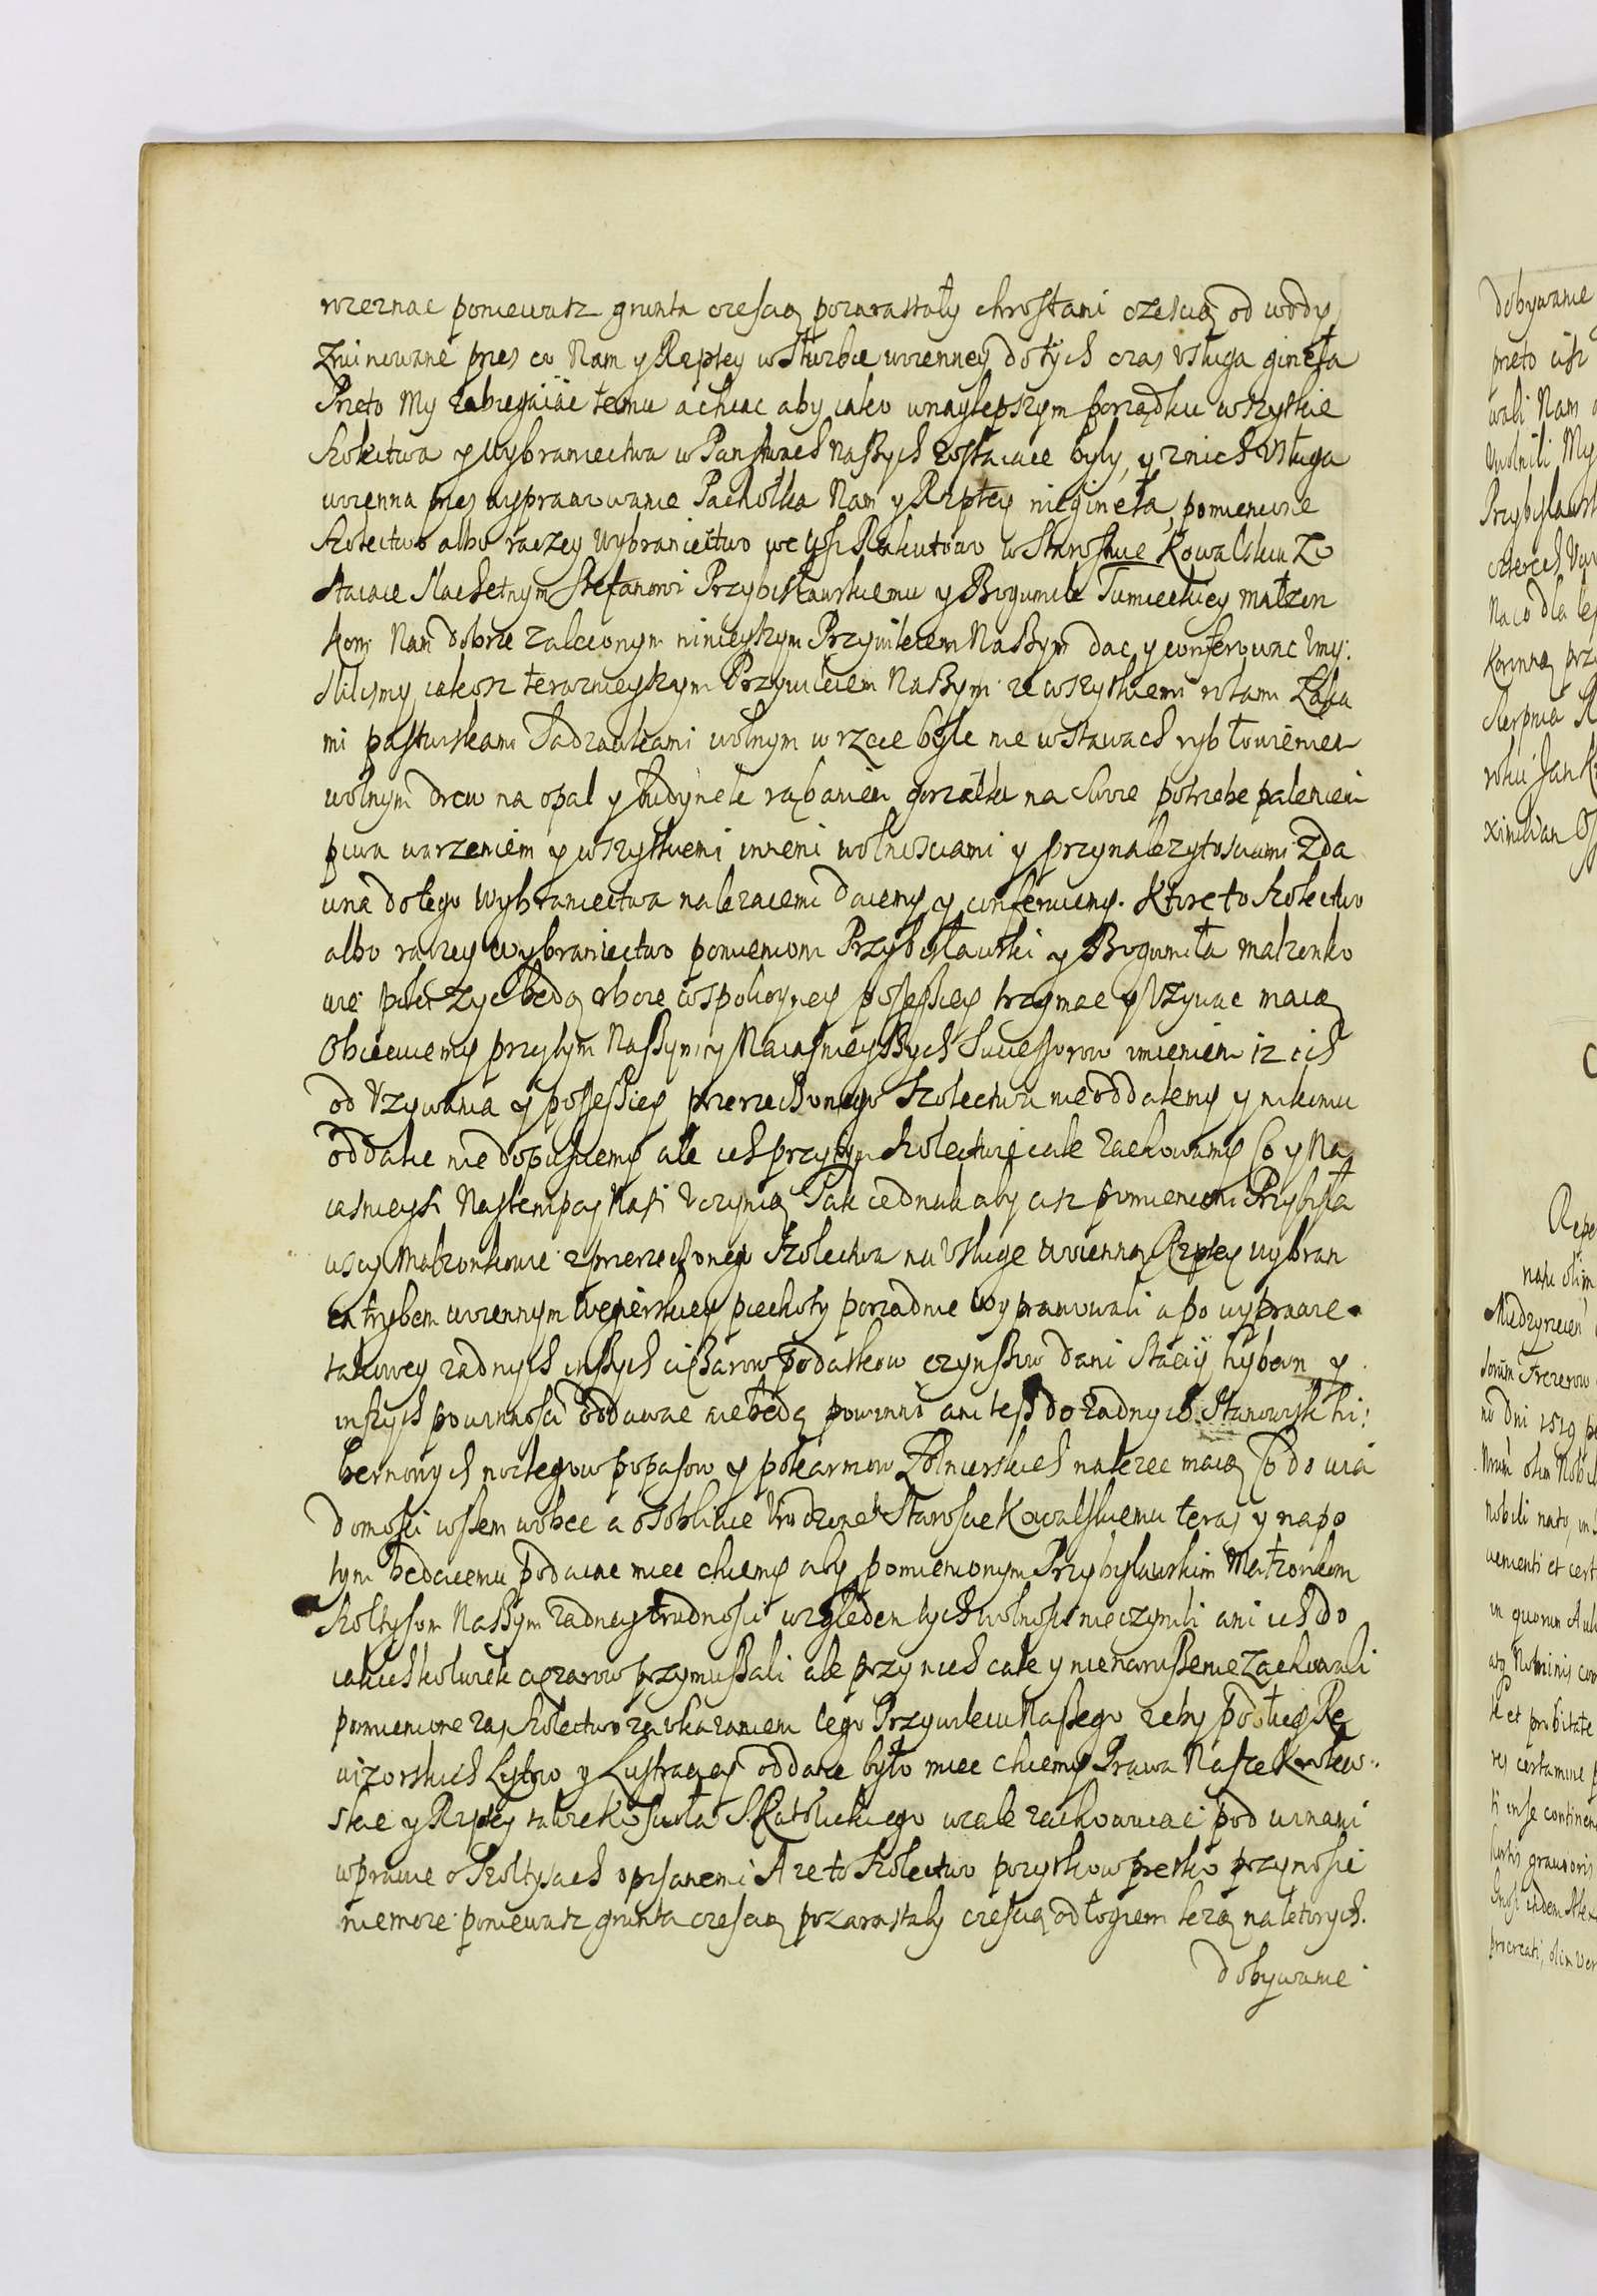 rozeznac poniewasz grunta czescią pozarastały chrostami czescią od wody
zruinowane przes co Nam y Rzptey w słuzbie woienney do tych czas usługa gineła
Przeto My zabiegaiąc temu a chcac aby iako w naylepszym porządku wszystkie
Szołectwa y Wybraniectwa w Panstwach Naszych zostaiące były, y z nich Usługa
woienna przez wyprawowanie Pachołka Nam y Rzptey niegineła, pomienione
Szołectwo albo raczey Wybraniectwo we Wsi Rakutowo w Starostwie Kowalskim zo
staiące Slachetnym Stefanowi Przybisławskiemu y Bogumile Tumieckiey małzon
kom Nam dobrze zaleconym ninieyszym Przywileiem Naszym dac y conferowac Umy:
slilismy, iakosz terazneyszym Przywileiem Naszym ze wszytkiemi rolami Łaka
mi pastwiskami Sadzawkami wolnym w rzece byle nie w stawach ryb łowieniem
wolnym drew na opał y budynek rąbaniem gorzałki na swoie potrzebe paleniem
piwa warzeniem y wszytkiemi innemi wolnosciami y przynalezytosciami zda
wna do tego Wybraniectwa nalezacemi daiemy y conferuiemy. Ktore to szołectwo
albo raczey Wybraniectwo pomienioni Przybisławski y Bogumiła małzonko
wie poki zyc będą oboie w spokoyney possessiey trzymac y Uzywac maią
Obiecuiemy przytym Naszym y Naiasnieyszych Successorow imieniem iz ich
od Uzywania y possessiey przerzechonego szołectwa nie oddalemy y nikomu
oddalic nie dopuscimy ale ich przytym szołectwie cale zachowamy Co y Na
iasnieysi Nastempcy Nasi Uczynią Tak iednak aby cisz pomienieni Przybisła
wscy Małzonkowie z przerzechonego szołectwa na Usługe woienną Rzptey wybran
ca trybem woiennym Wegierskiey piechoty porzadnie wyprawowali a po wyprawie
takowey zadnych inszych ciężarow podatkow czynszow dani Staciy hybern y
inszych powinnosci oddawac nie będą powinni ani tesz do zadnych Stanowisk hi:
bernowych noclegow popasow y pokarmow Zołnierskich nalezec maią Co do wia
domosci wszem wobec a osobliwie Urodzonemu Staroscie Kowalskiemu teraz y napo
tym będącemu podaiąc miec chcemy aby pomienionym Przybisławskim Małzonkom
szołtysom Naszym zadney trudnosci wzgledem tych wolnosci nie czynili ani ich do
iakichkolwiek cięzarow przymuszali ale przy nich cale y nienaruszenie zachowali
pomienione zas szołectwo za ukazaniem tego Przywileiu Naszego zeby podług Re
wizorskich Listow y Lustraciey oddane było miec chcemy Prawa Nasze Krolew
skie y Rzptey takze Koscioła S. Katolickiego wcale zachowuiąc pod winami
w prawie o Szołtysach opisanemi A ze to szołectwo pozytkow prętko przynosic
niemoze poniewasz grunta czescią pozarastały czescią odłogiem lezą na ktorych
dobywanie